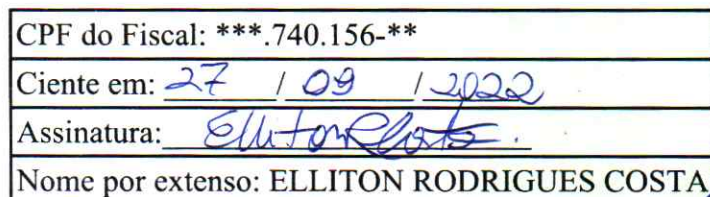 CPF do Fiscal: ***.740.156-**
Ciente em: 27 / 09 / 2022
Assinatura: Elliton RCosta.
Nome por extenso: ELLITON RODRIGUES COSTA